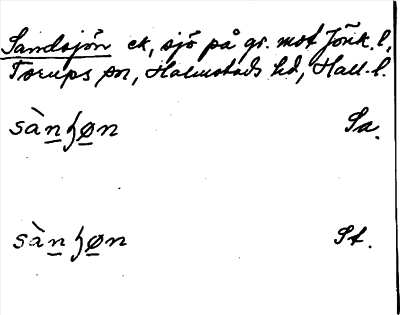 Sandsjön ek, sjö på gr. mot Jönk. l.
Torups sn, Halmstads hd, Hall. l.
sànʒøn Sa.
sànʒøn St.